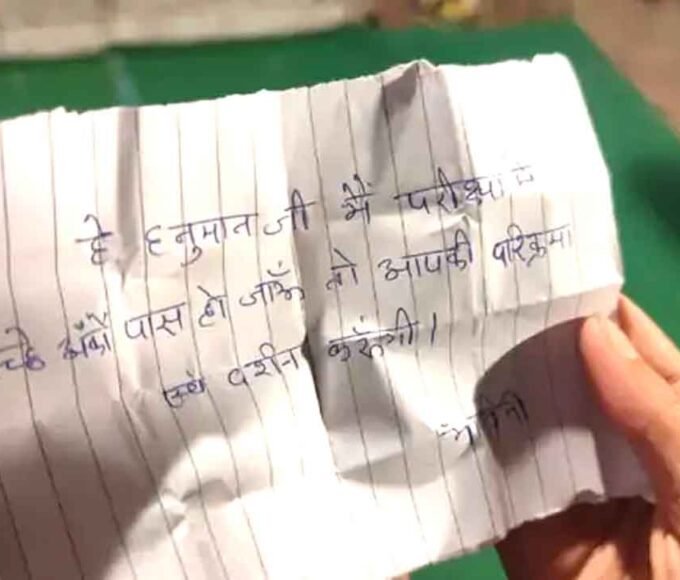 हे हनुमान जी मैं परीक्षा में
अंको पास हो जाऊँ तो आपकी परिक्रमा
एवं दर्शन करूंगी।